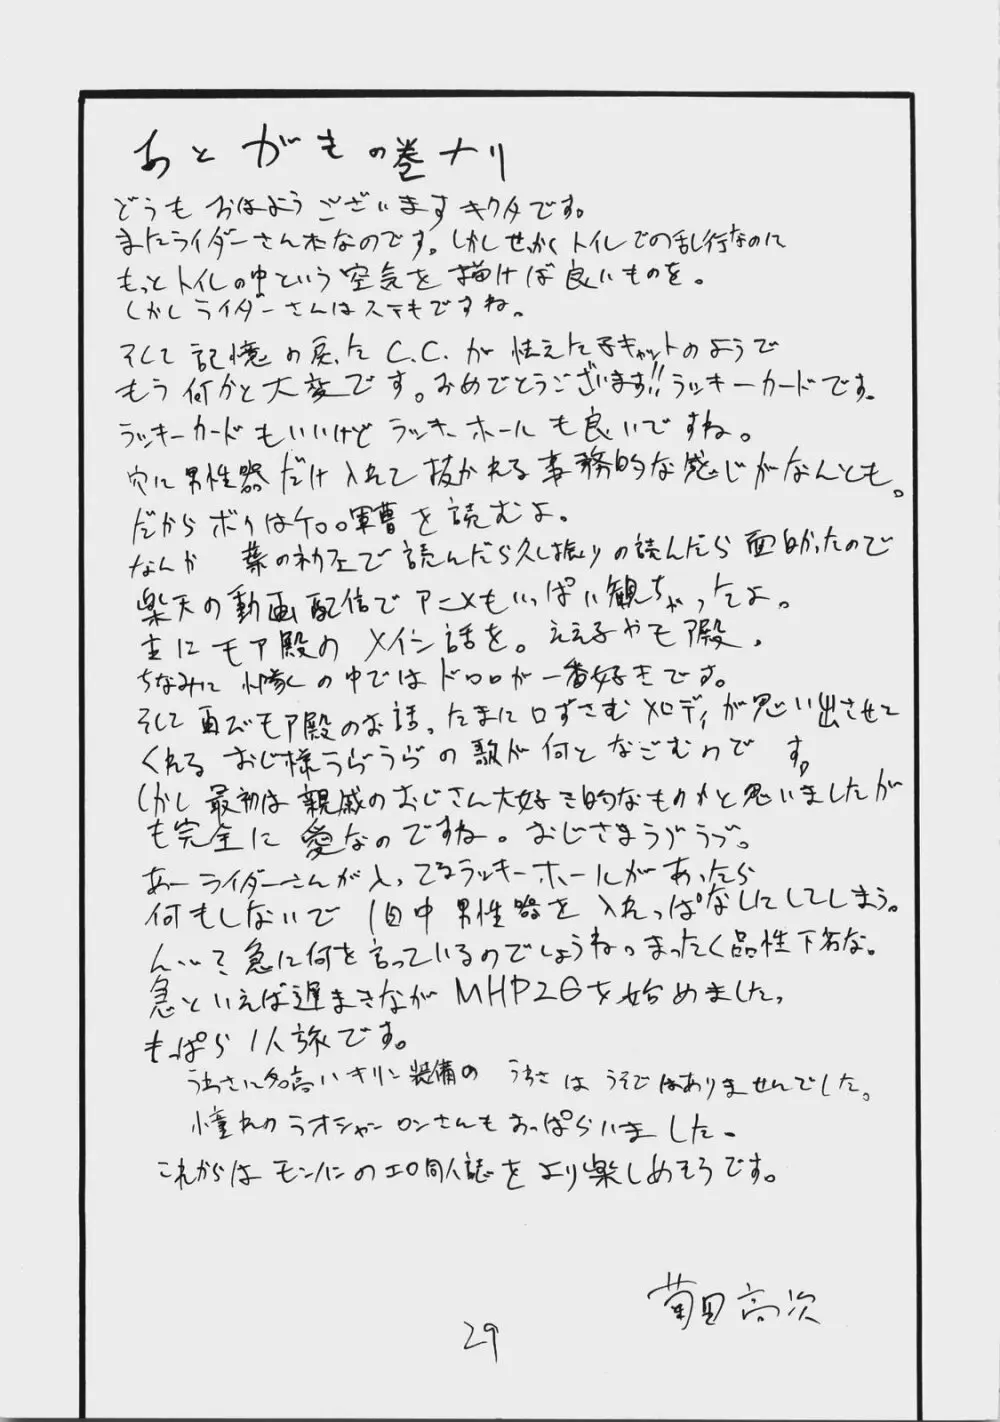 あとがもの巻ナリ
どうもおはようございますキクタです。
またライダーさん本なのです。しかしせっかくトイレでの乱行なのに
もっとトイレの中という空気を描けば良いものを。
しかしライダーさんはステキですね。
そして記憶の戻ったC.C.が怯えた子キャットのようで
もう何かと大変です。おめでとうございます!!ラッキーカードです。
ラッキーカードもいいけどラッキーホールも良いですね。
穴に男性器だけ入れて抜かれる事務的な感じがなんとも。
だからボクはケロロ軍曹を読むよ。
なんか 薬のネタで読んだら久し振りの読んだら面白かったので
楽天の動画配信でアニメもいっぱい観ちゃったよ。
主にモア殿のメイン話を。ええ子やモア殿。
ちなみに小隊の中ではドロロが一番好きです。
そして再びモア殿のお話。たまに口ずさむメロディが思い出させて
くれる おじ様うらうらの歌が何となごむのです。
しかし最初は親戚のおじさん大好き的なものかと思いましたが
も完全に愛なのですね。おじさまうらうら。
あーライダーさんが入ってるラッキーホールがあったら
何もしないで1日中男性器を入れっぱなしにしてしまう。
ん…?急に何を言っているのでしょうね。まったく品性下劣な。
急といえば遅まきながMHP2Gを始めました。
もっぱら1人旅です。
うわさに名高いキリン装備のうわさはうそではありませんでした。
憧れのラオシャンロンさんもおっぱらいました。
これからはモンハンのエロ同人誌をより楽しめそうです。
菊田高次
29